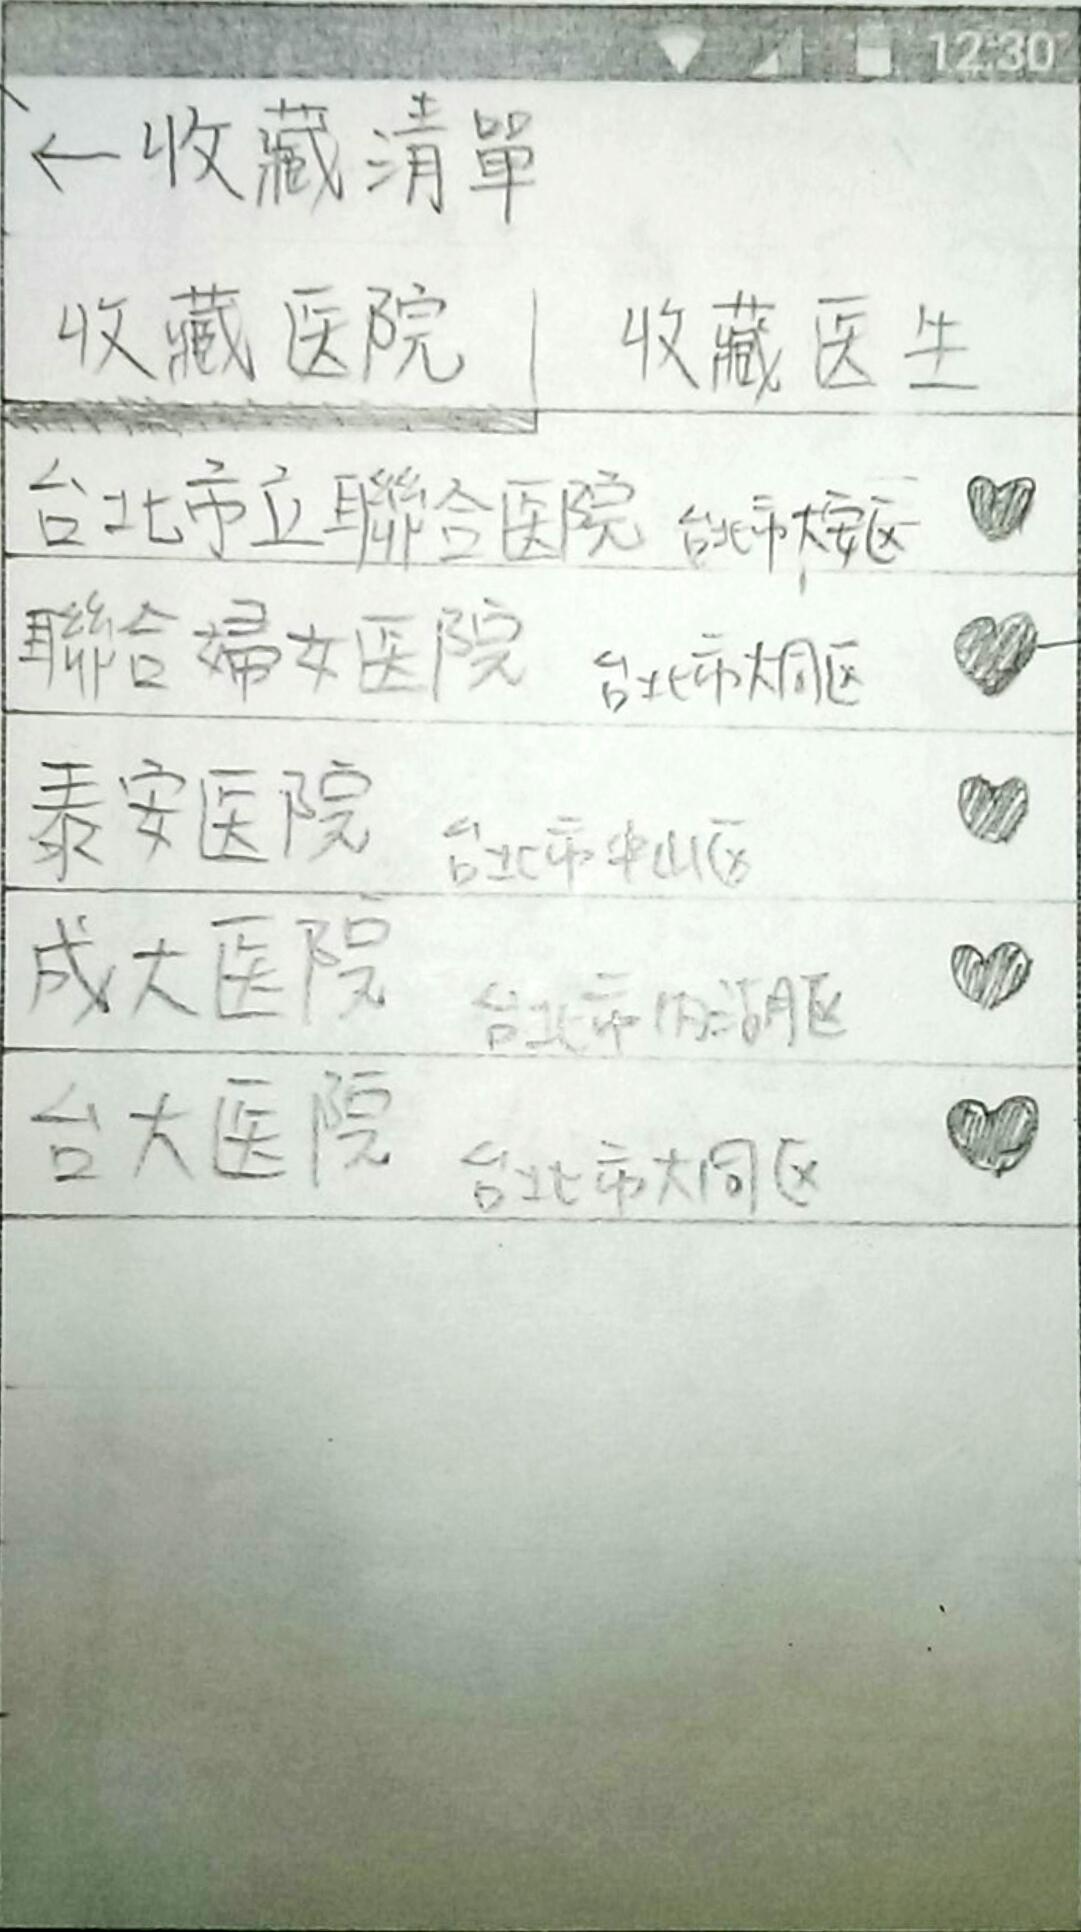 12:30
←收藏清單
收藏医院 收藏医生
台北市立聯合医院 台北市大安区
聯合婦女医院 台北市大同区
泰安医院 台北市中山区
成大医院 台北市内湖区
台大医院 台北市大同区